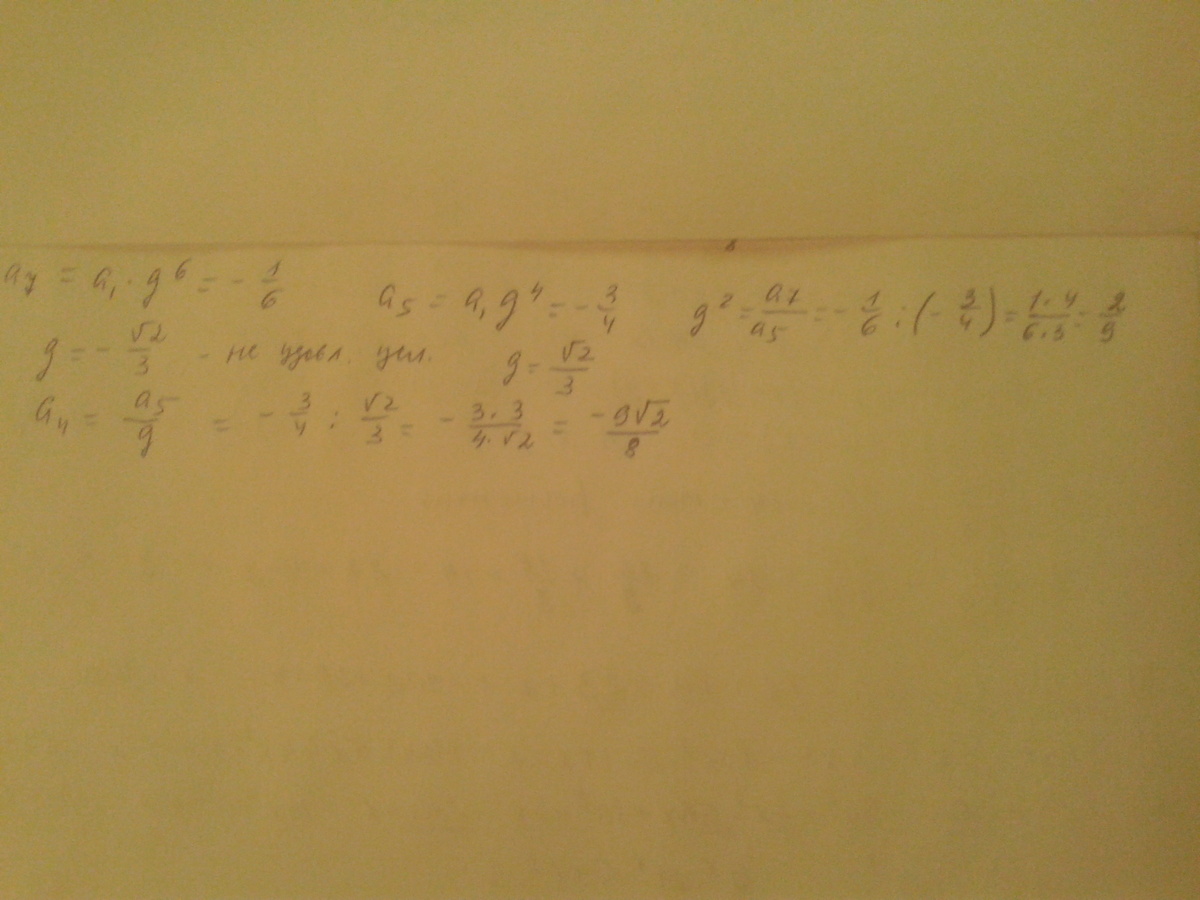 a₇ = a₁ · g⁶ = - 1/6 a₅ = a₁ g⁴ = - 3/4 g² = a₇/a₅ = - 1/6 : (- 3/4) = 1·4/6·3 = 2/9
g = - √2/3 - не удовл. усл. g = √2/3
a₄ = a₅/g = - 3/4 : √2/3 = - 3·3/4·√2 = -9√2/8